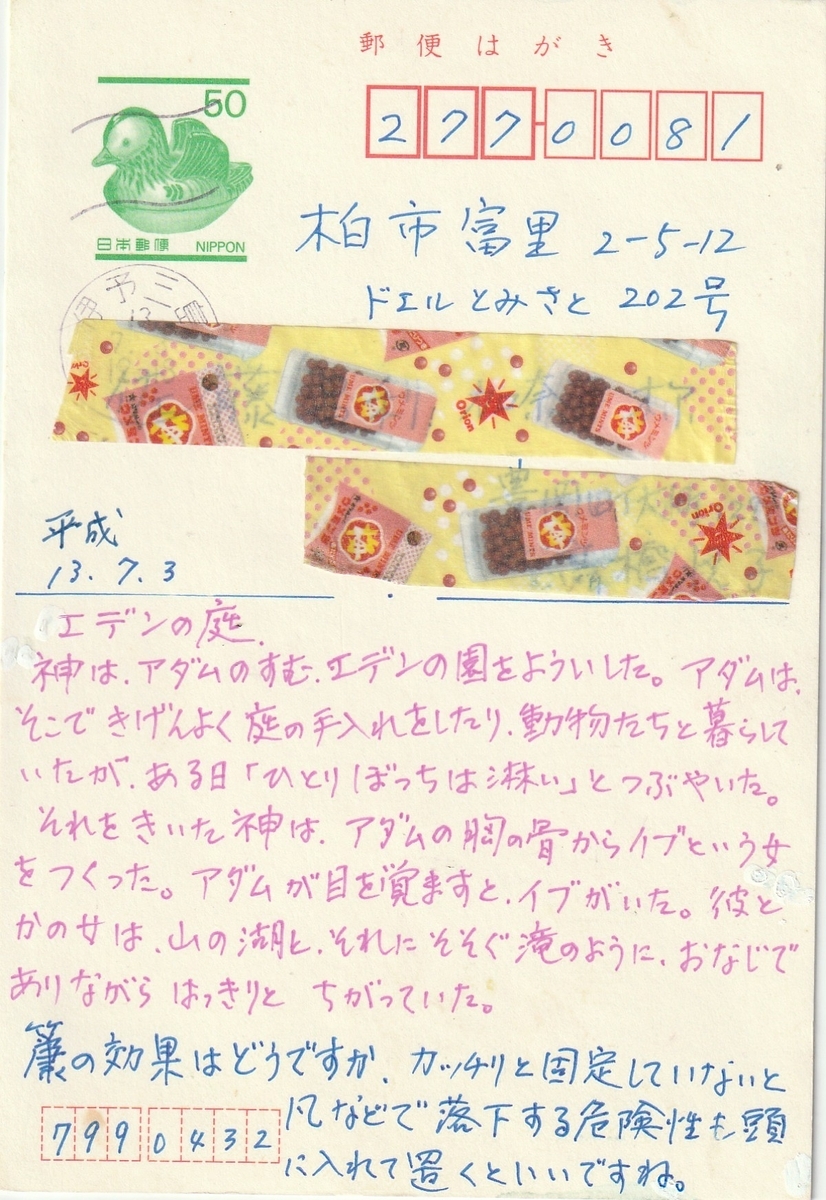 郵便はがき
50
日本郵便 NIPPON
2770081
柏市富里 2-5-12
ドエルとみさと 202号
Orion
UME MINTS
Orion
平成
13.7.3
エデンの庭.
神は、アダムのすむ、エデンの園をよういした。アダムは、
そこできげんよく庭の手入れをしたり、動物たちと暮らして
いたが、ある日「ひとりぼっちは淋い」とつぶやいた。
それをきいた神は、アダムの胸の骨からイブという女
をつくった。アダムが目を覚ますと、イブがいた。彼と
かの女は、山の湖と、それにそそぐ滝のように、おなじで
ありながら はっきりと ちがっていた。
簾の効果はどうですか、カッチリと固定していないと
凡などで落下する危険性も頭
に入れて置くといいですね。
7990432